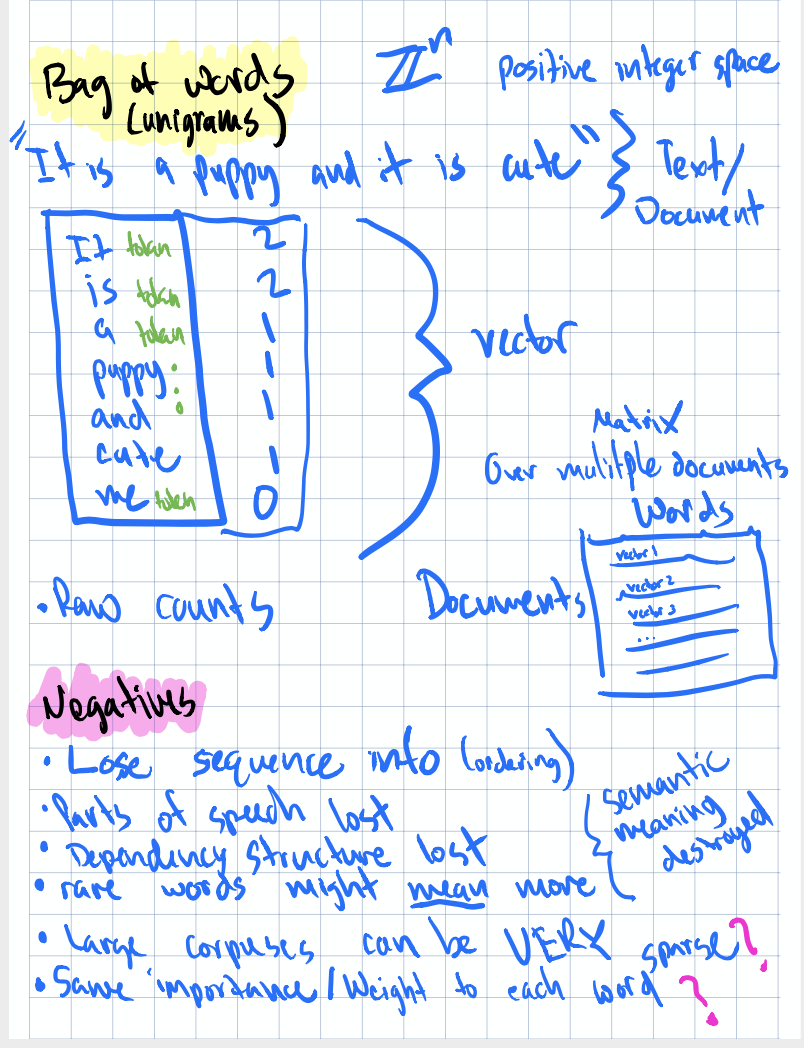 Bag of words
(unigrams)
ℤⁿ positive integer space
"It is a puppy and it is cute" } Text/
Document
It token 2
is token 2
a token 1
puppy : 1
and 1
cute 1
me token 0
vector
Matrix
Over mulitple documents
Words
Documents
vector 1
vector 2
vector 3
...
• Raw counts
Negatives
• Lose sequence info (ordering)
• Parts of speech lost
• Dependency structure lost
• rare words might mean more
semantic
meaning
destroyed
• Large corpuses can be VERY sparse?
• Same importance/Weight to each word?